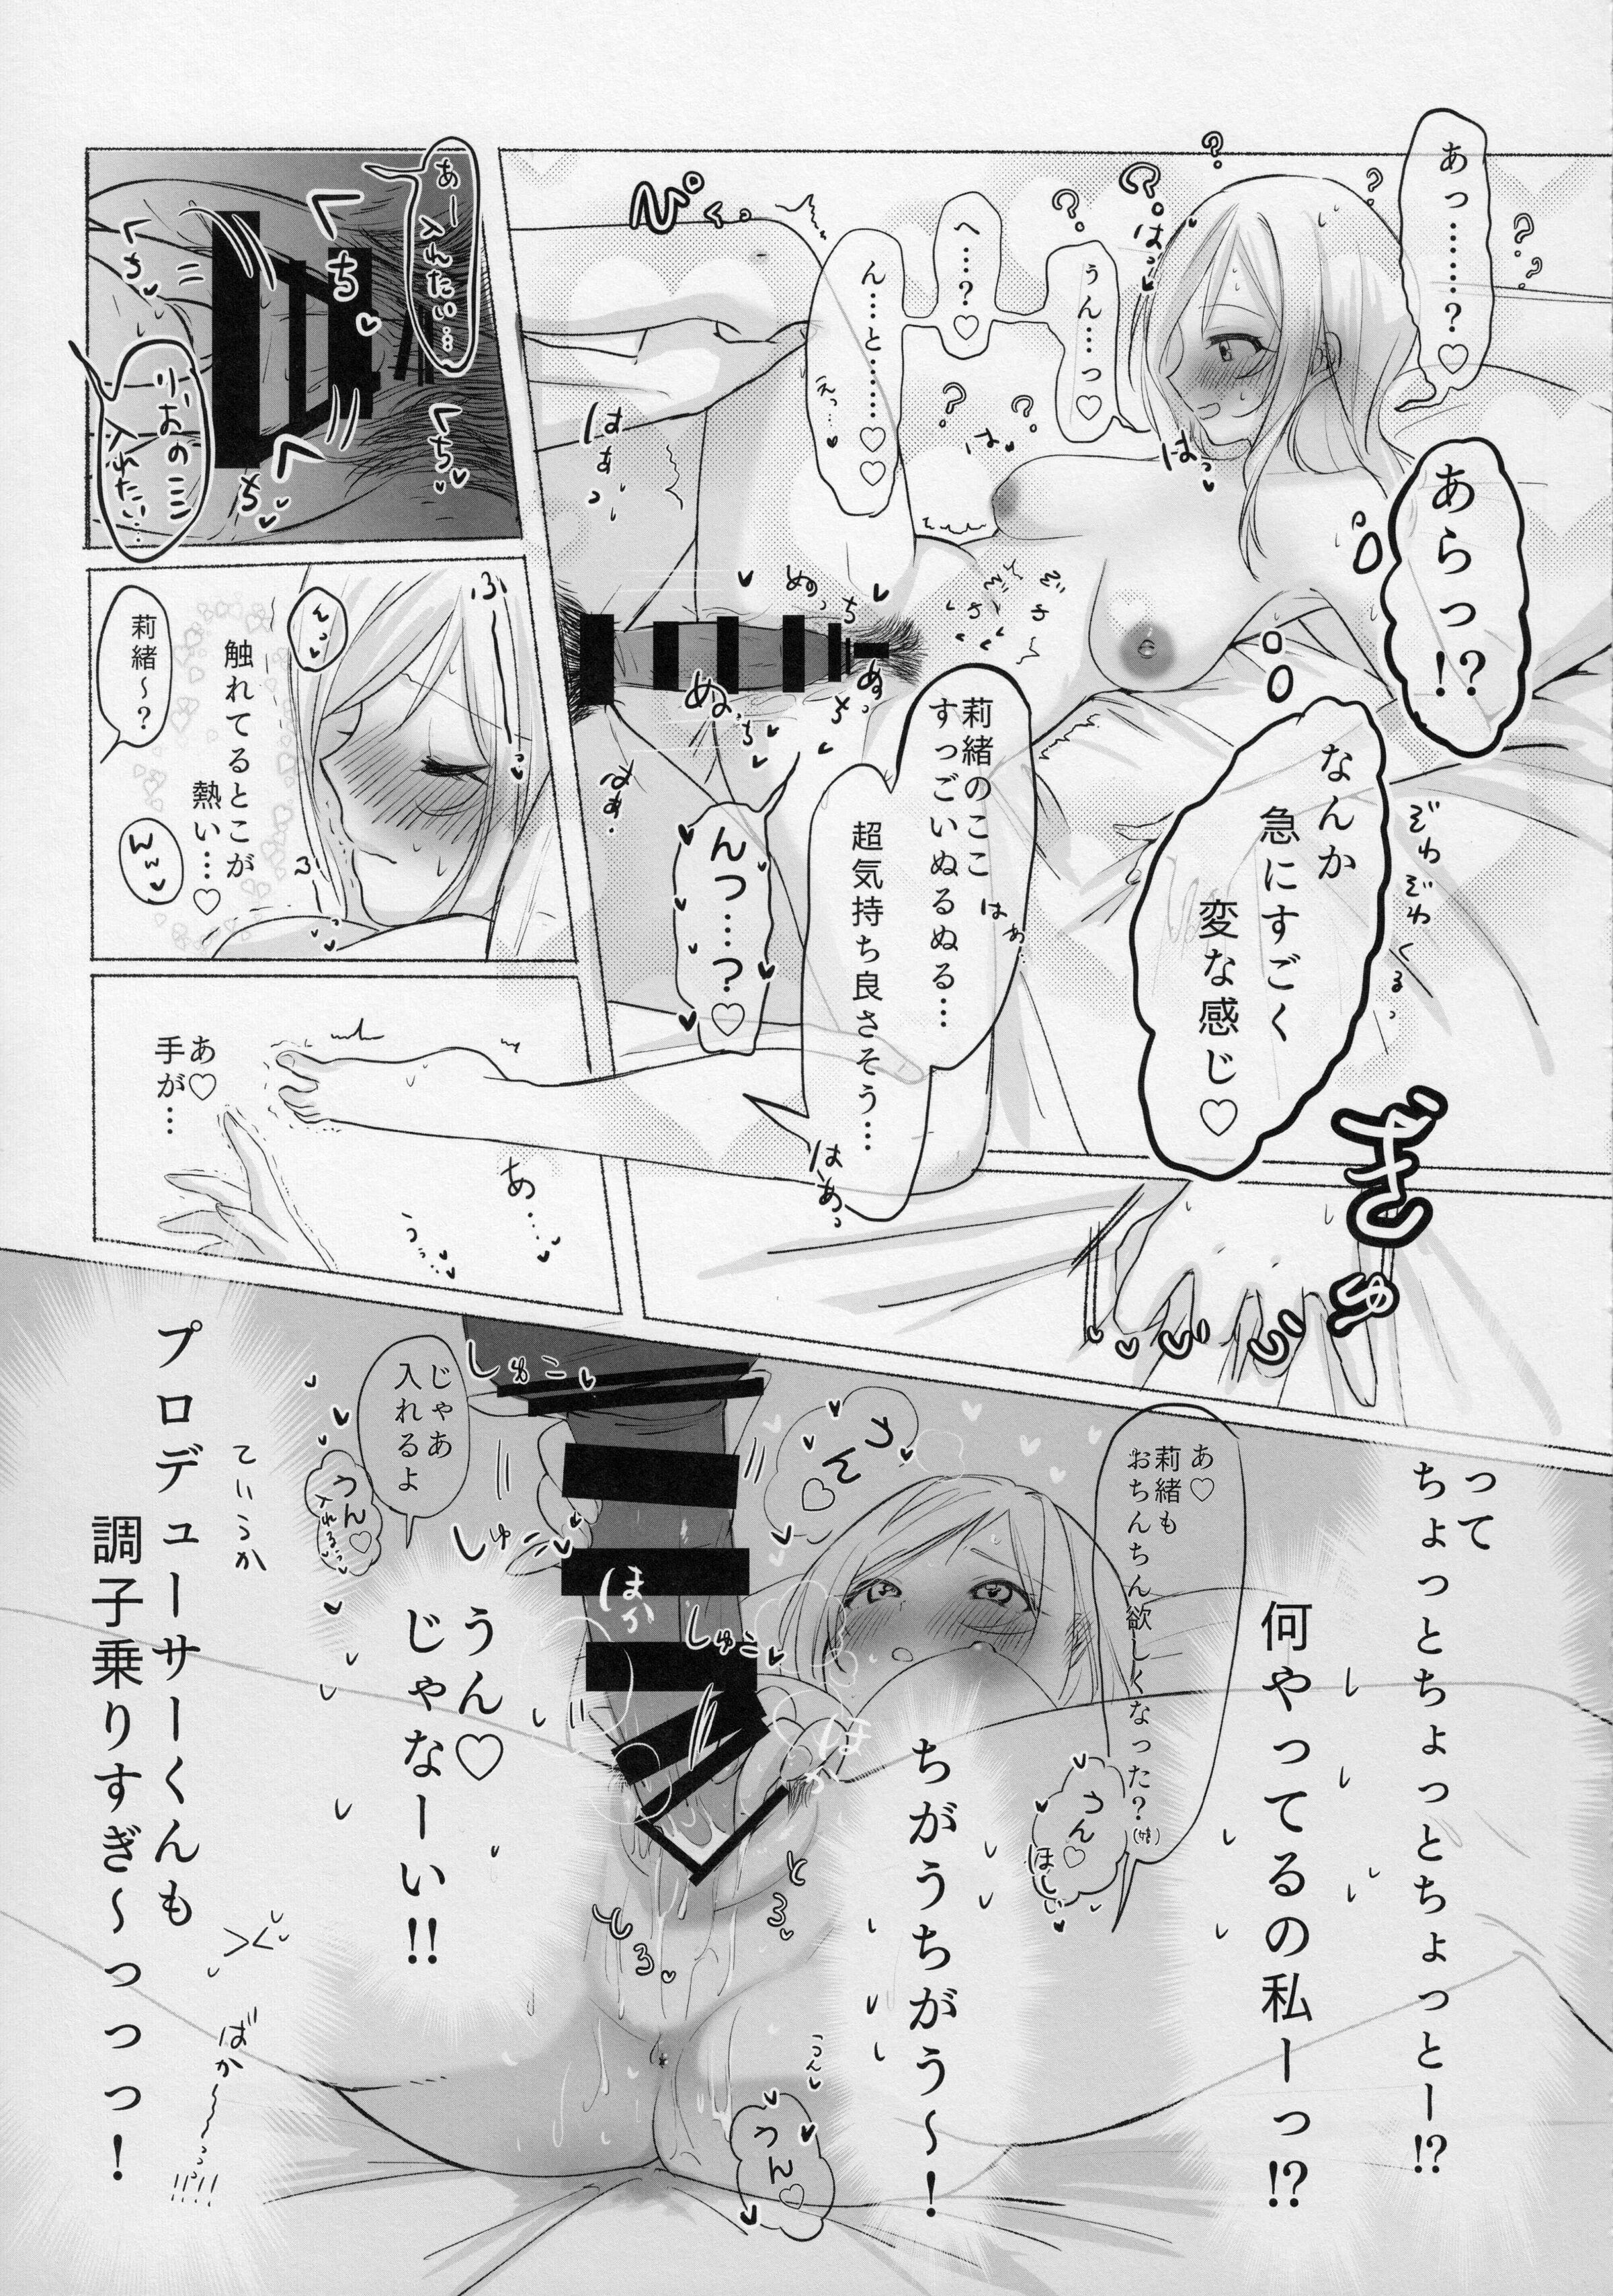 あっ……?♡
うん…っ♡
へ…?♡
ん…と……♡♡
えっ…
あらっ!?
なんか
急にすごく
変な感じ♡
ぞわぞわ
ぴくっ
はっ
はっ
はぁっ
ぬっち
ぬっち
ぬっち
莉緒のここ
すっごいぬるぬる…
超気持ち良さそう…
はぁ
はぁっ
んっ…っ?♡
あー入れたい…
りおのココ
入れたい…
くち
くち
くち
くち
ふーっ
んっ
触れてるとこが
熱い…♡
莉緒〜?
んっ
あ♡
手が…
あ…
うっ…
ぎゅ
って
ちょっとちょっとちょっとー!?
何やってるの私ーっ!?
あ♡
莉緒も
おちんちん欲しくなった?
うん♡
ほしい
うん♡
ちがうちがう〜!
じゃあ
入れるよ
うん♡
入れるっ
しゅこ
しゅこ
しゅこ
ほか
ほか
とろ
とろ
うん♡
じゃなーい!!
うん♡
ていうか
プロデューサーくんも
調子乗りすぎ〜っっっ!
ばか〜っっ!!!